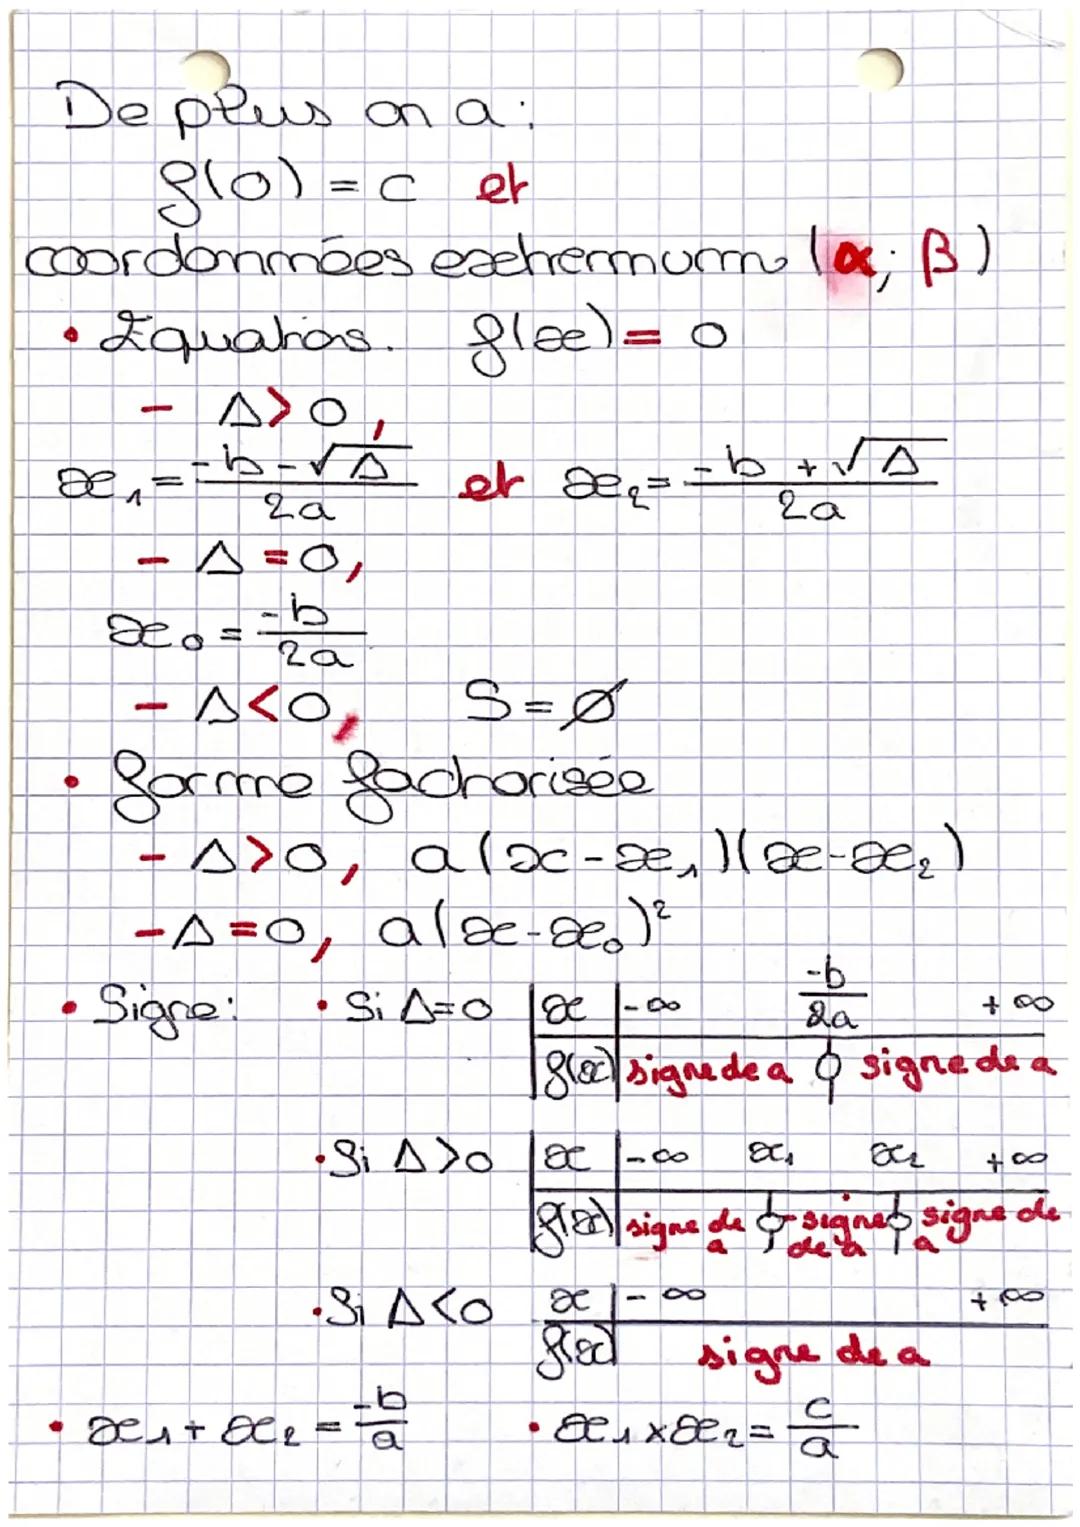 De plus on a :
f(0) = c et
coordonnées extremum (α; β)
• Equations. f(x) = 0
- Δ > 0,
x₁ = (-b - √Δ)/2a et x₂ = (-b + √Δ)/2a
- Δ = 0,
x₀ = -b/2a
- Δ < 0, S = ∅
• forme factorisée
- Δ > 0, a(x - x₁)(x - x₂)
- Δ = 0, a(x - x₀)²
• Signe: • Si Δ = 0 | x | -∞ -b/2a +∞
f(x) | signe de a 0 signe de a
• Si Δ > 0 | x | -∞ x₁ x₂ +∞
f(x) | signe de a 0 -signe de a 0 signe de a
• Si Δ < 0 x | -∞ +∞
f(x) | signe de a
• x₁ + x₂ = -b/a • x₁ × x₂ = c/a